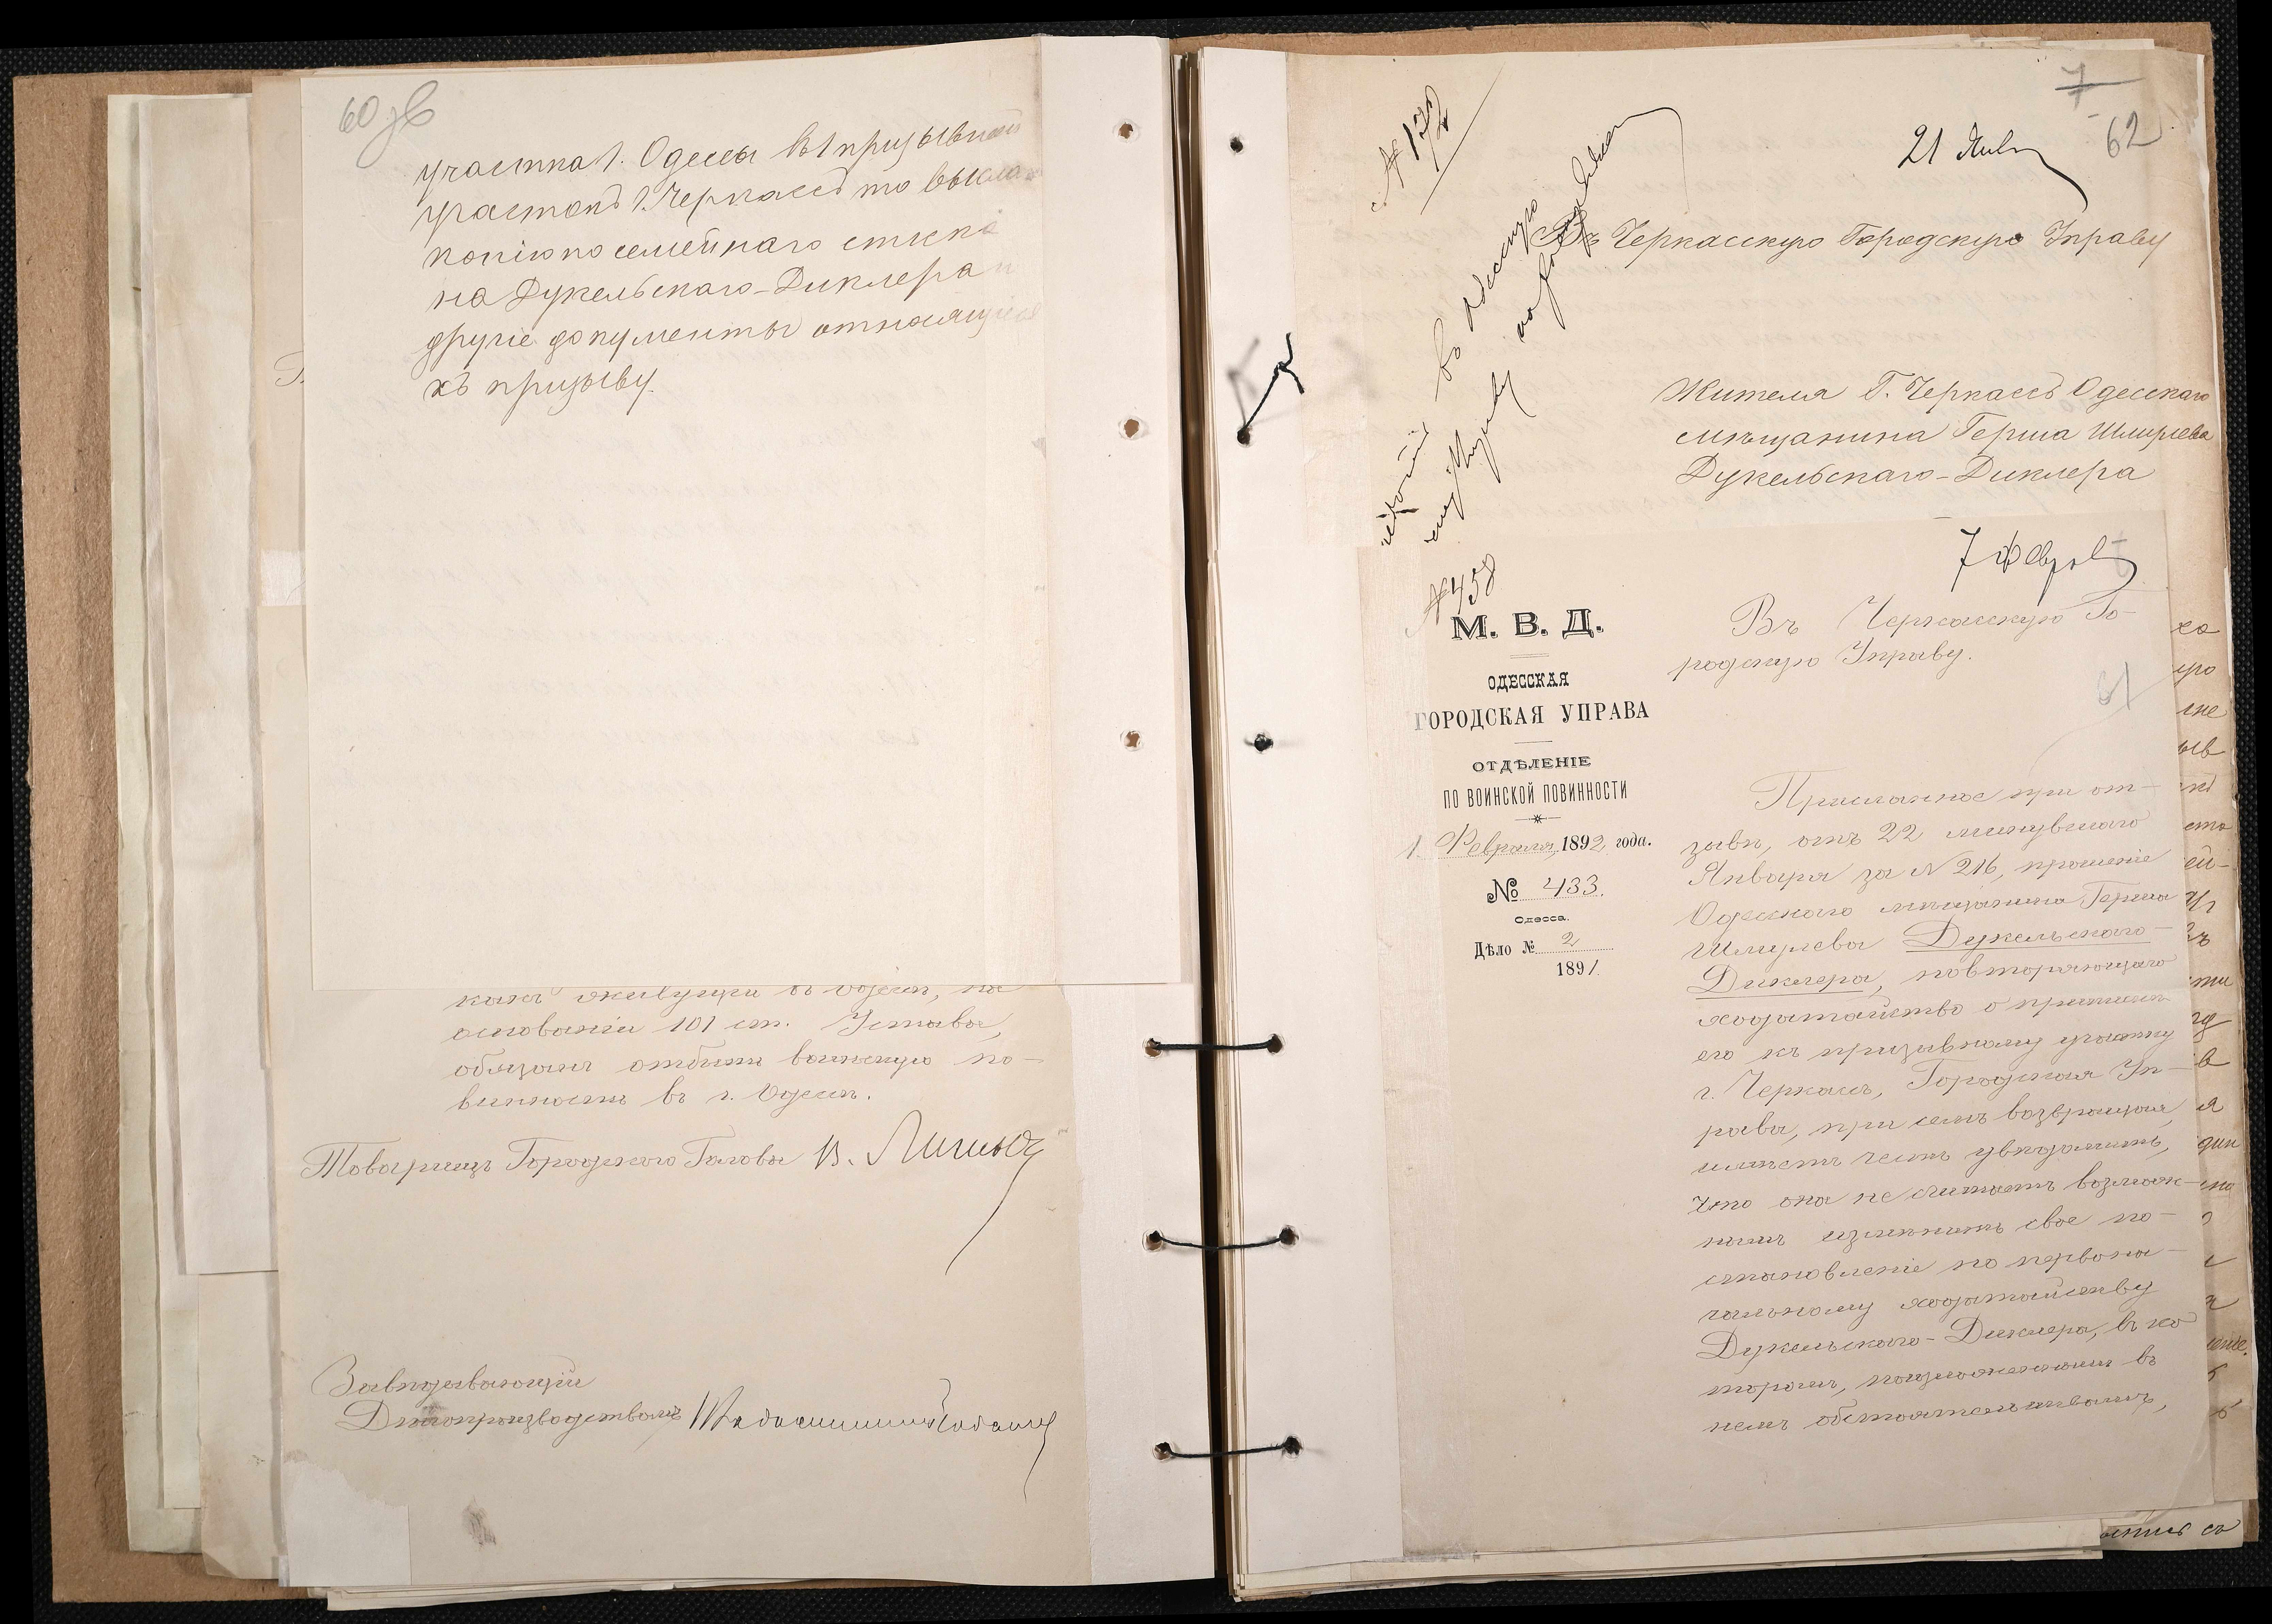 60 об
участка г. Одессы въ призывной
участокъ г. Черкассъ то выслать
копію посемейнаго списка
на Дукельскаго-Диклера и
другіе документы относящіеся
къ призыву.
какъ живущій въ Одессѣ, на
основаніи 101 ст. Устава,
обязанъ отбыть воинскую по-
винность въ г. Одессѣ.
Товарищъ Городского Головы В. Лигинъ
Завѣдывающій
Дѣлопроизводствомъ
7
62
№ 172
21 Янв
Въ Черкасскую Городскую Управу
въ Одесскую
Управу
Жителя Г. Черкассъ Одесскаго
мѣщанина Герша Шмулева
Дукельскаго-Диклера
7 Февр
№ 458
М. В. Д.
ОДЕССКАЯ
ГОРОДСКАЯ УПРАВА
ОТДѢЛЕНІЕ
ПО ВОИНСКОЙ ПОВИННОСТИ
1 Февраля 1892 года.
№ 433.
Одесса.
Дѣло № 2
1891
Въ Черкасскую Го-
родскую Управу.
61
Присланное при от-
зывѣ, отъ 22 минувшаго
Января за № 216, прошеніе
Одесскаго мѣщанина Герша
Шмулева Дукельскаго-
Диклера, повторяющаго
ходатайство о припискѣ
его къ призывному участку
г. Черкассъ, Городская Уп-
рава, при семъ возвращая,
имѣетъ честь увѣдомить,
что она не считаетъ возмож-
нымъ измѣнить свое по-
становленіе по первона-
чальному ходатайству
Дукельскаго-Диклера, въ ко
торомъ, по изложеннымъ въ
немъ обстоятельствамъ,